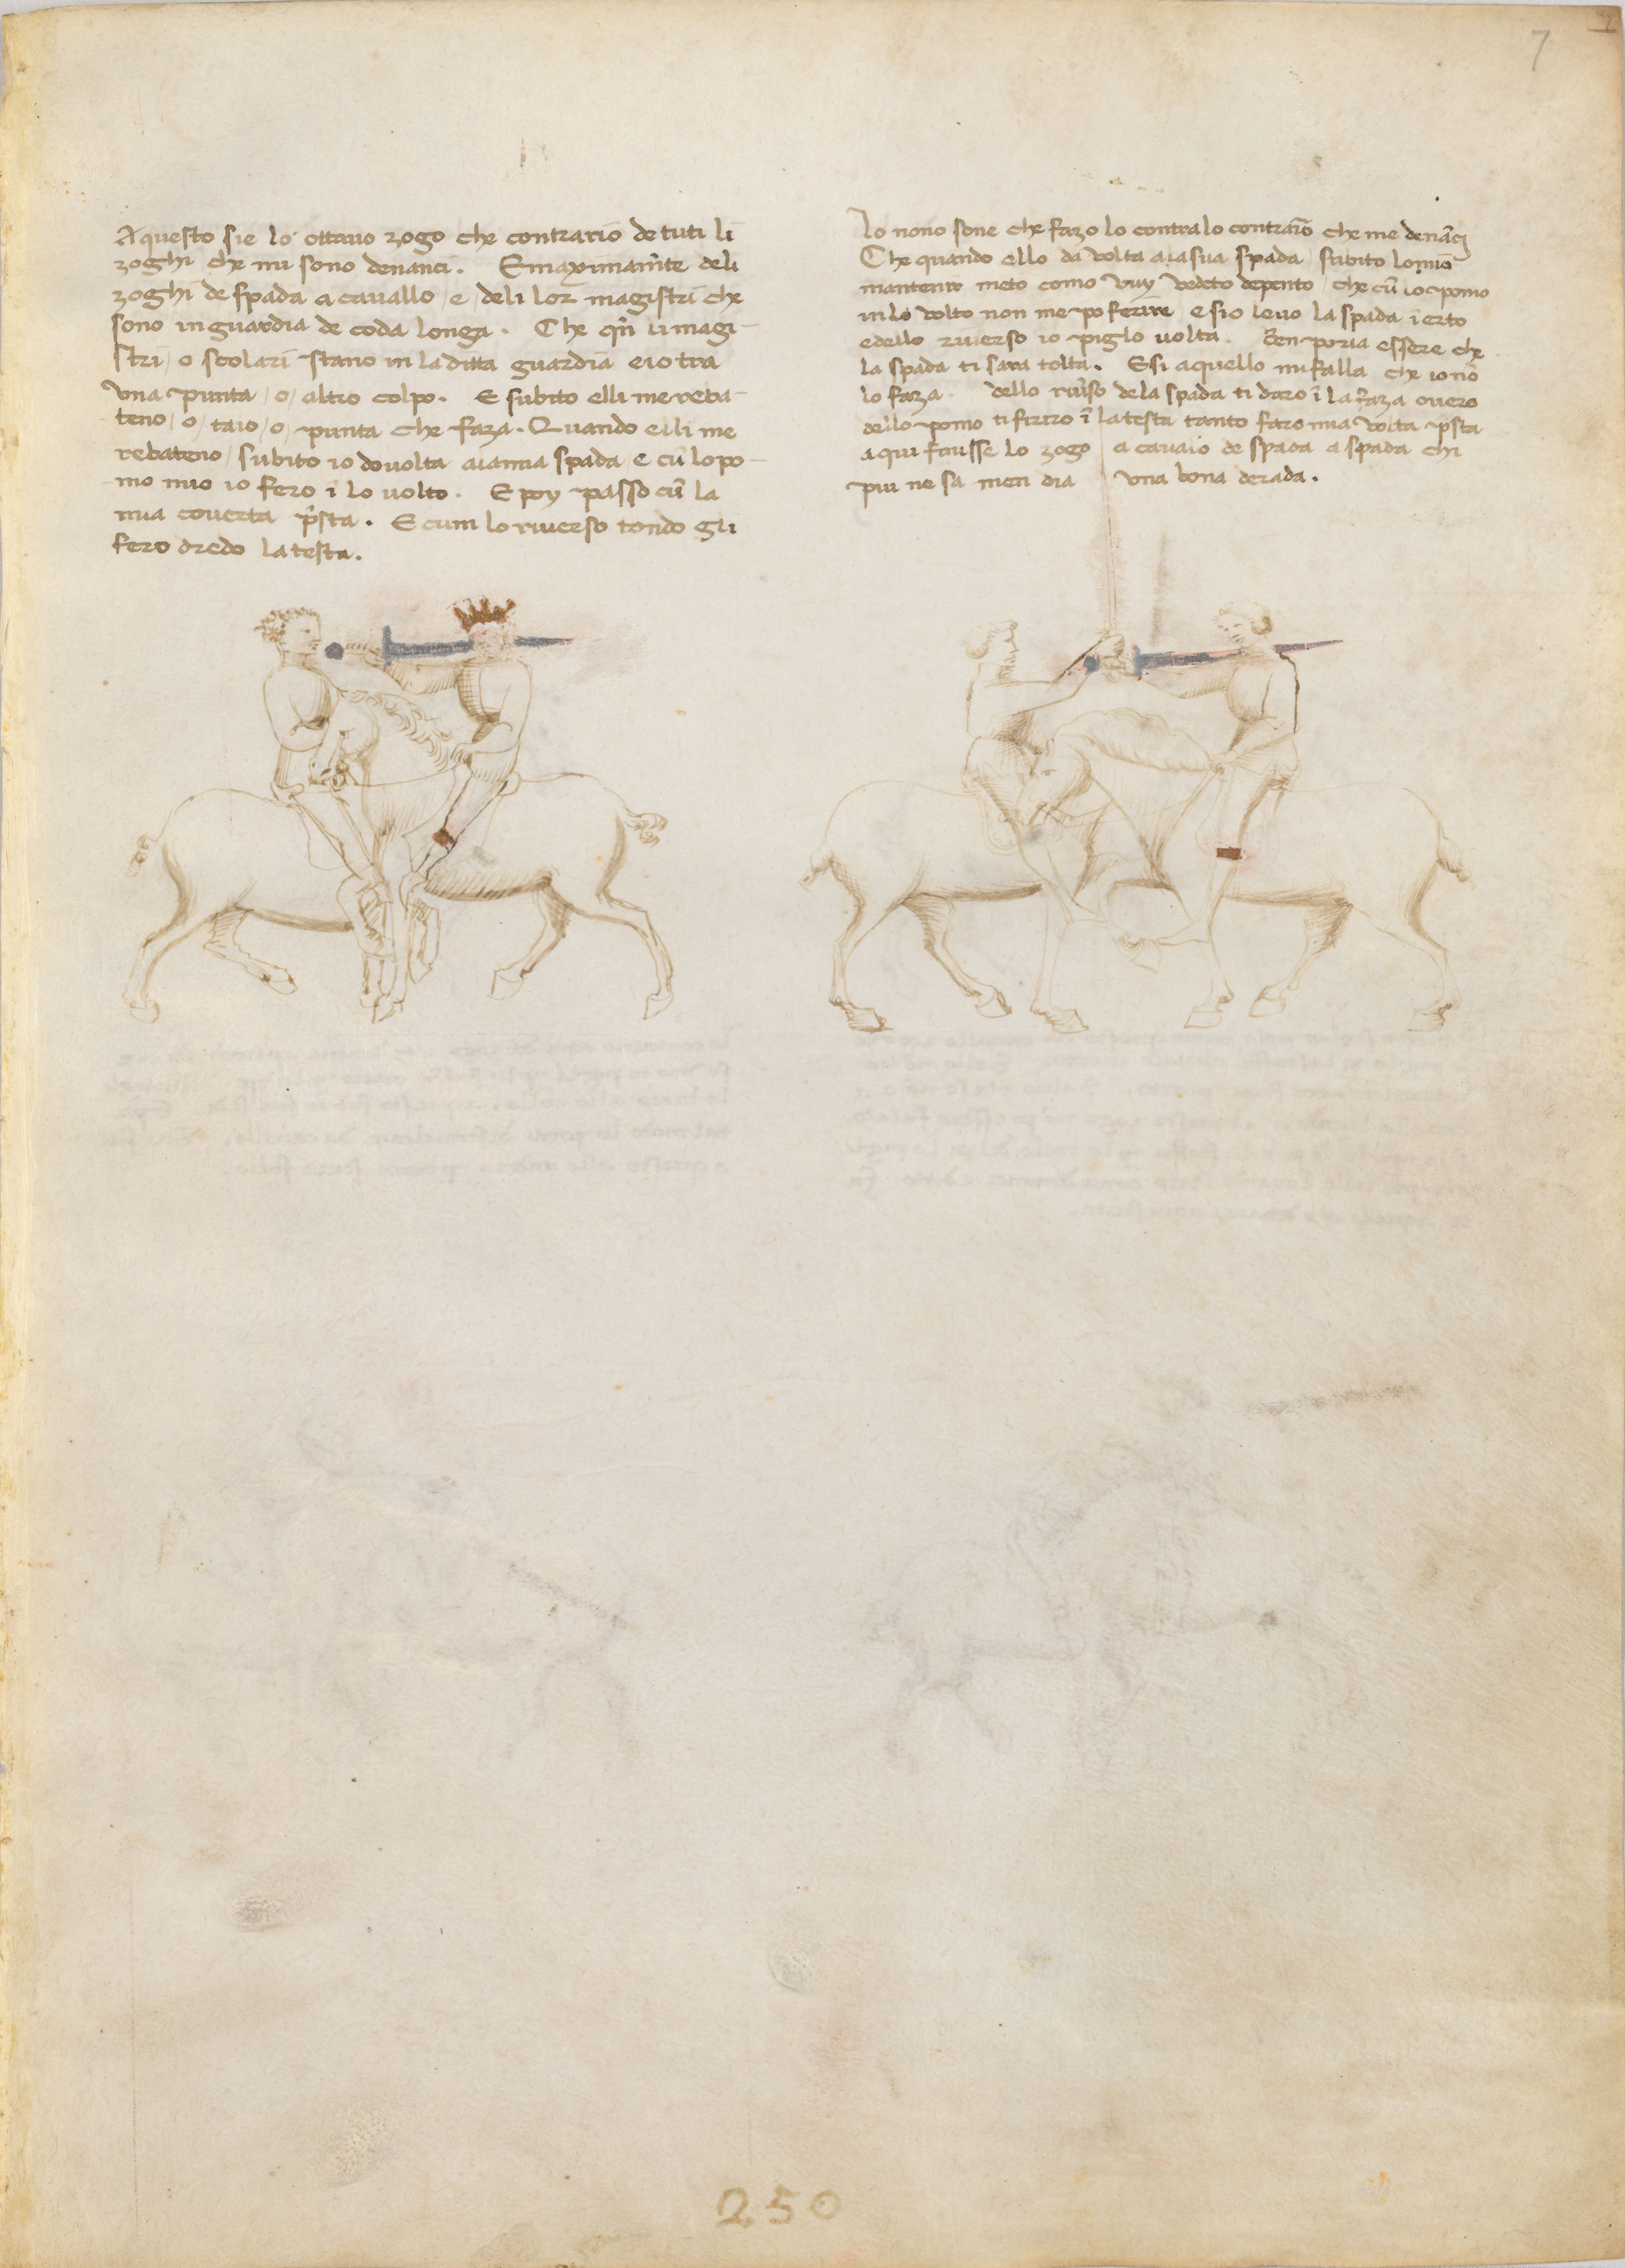 7
Aquesto sie lo ottauo zogo che contrario de tuti li
zoghi che mi sono denanci. E maximam̃te deli
zoghi de spada a cauallo / e deli lor magistri che
sono in guardia de coda longa. Che qñ li magi-
stri / o scolari stano in la ditta guardia e io tra
una punta / o / altro colpo. E subito elli me reba-
teno / o / taio / o / punta che faza. Quando elli me
rebateno / subito io do volta ala mia spada e cũ lo po-
mo mio io fero ĩ lo volto. E poy passo cũ la
mia couerta p̃sta. E cum lo riuerso tondo gli
fero dredo la testa.
Io nono sone che fazo lo contra lo contrario che me denãci
Che quando ello da volta a la sua spada / subito lo mio
mantenir meto como vuy vedeto depento / che cũ lo pomo
in lo volto non me po ferire e sio leuo la spada ĩ erto
e dello riuerso io piglo volta. Ben poria essere che
la spada ti sara tolta. E si aquello mi falla che io nõ
lo faza dello riũso de la spada ti daro ĩ la faza ouero
dello pomo ti feriro ĩ la testa tanto faro mia volta p̃sta
aqui finisse lo zogo a cauallo de spada a spada chi
piu ne sa men dia una bona derada.
250